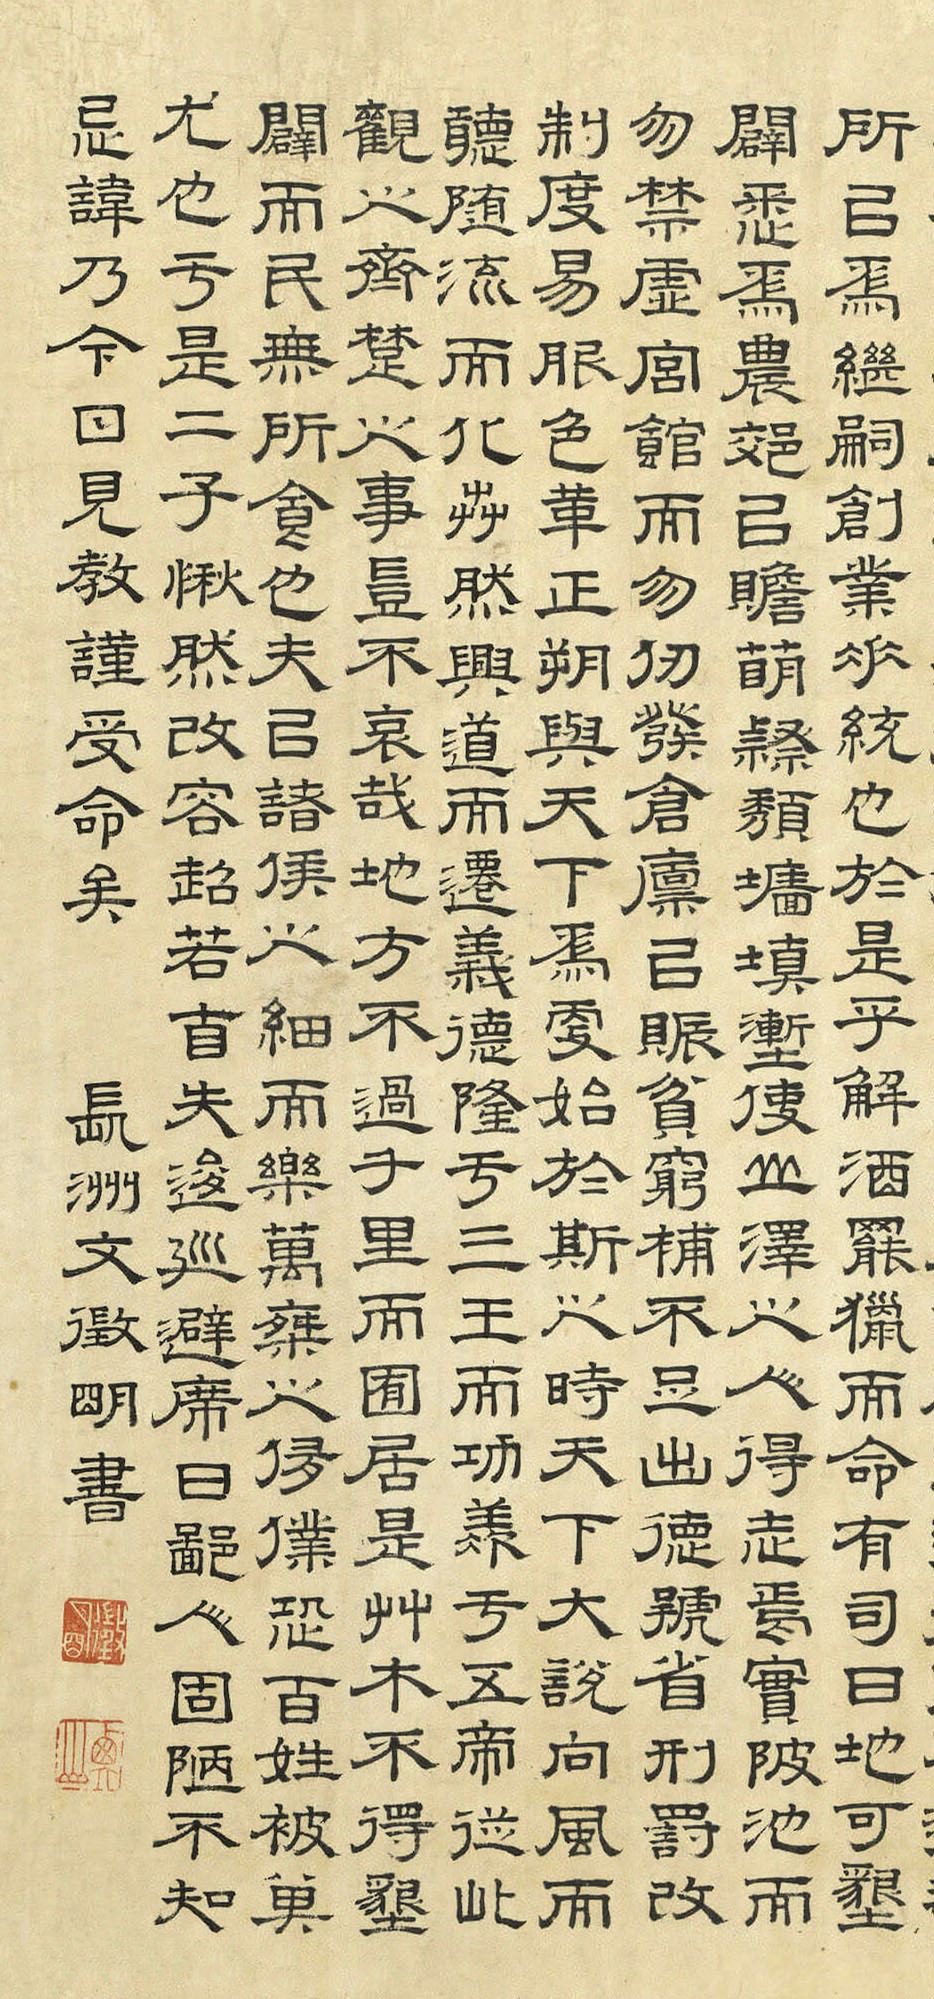 所㠯爲繼嗣創業垂統也於是乎解酒罷獵而命有司曰地可墾
闢悉爲農郊㠯贍萌隸頹墻填壍使山澤之人得走焉實陂池而
勿禁虛宮館而勿仞發倉廩㠯賑貧窮補不足出德號省刑罰改
制度易服色革正朔與天下爲更始於斯之時天下大說向風而
聽隨流而化芔然興道而遷義德隆于三王而功羡于五帝從此
觀之齊楚之事豈不哀哉地方不過千里而囿居是艸木不得墾
闢而民無所食也夫㠯諸侯之細而樂萬乘之侈僕恐百姓被其
尤也于是二子愀然改容超若自失逡巡避席曰鄙人固陋不知
忌諱乃今日見教謹受命矣 長洲文徵明書
徵明